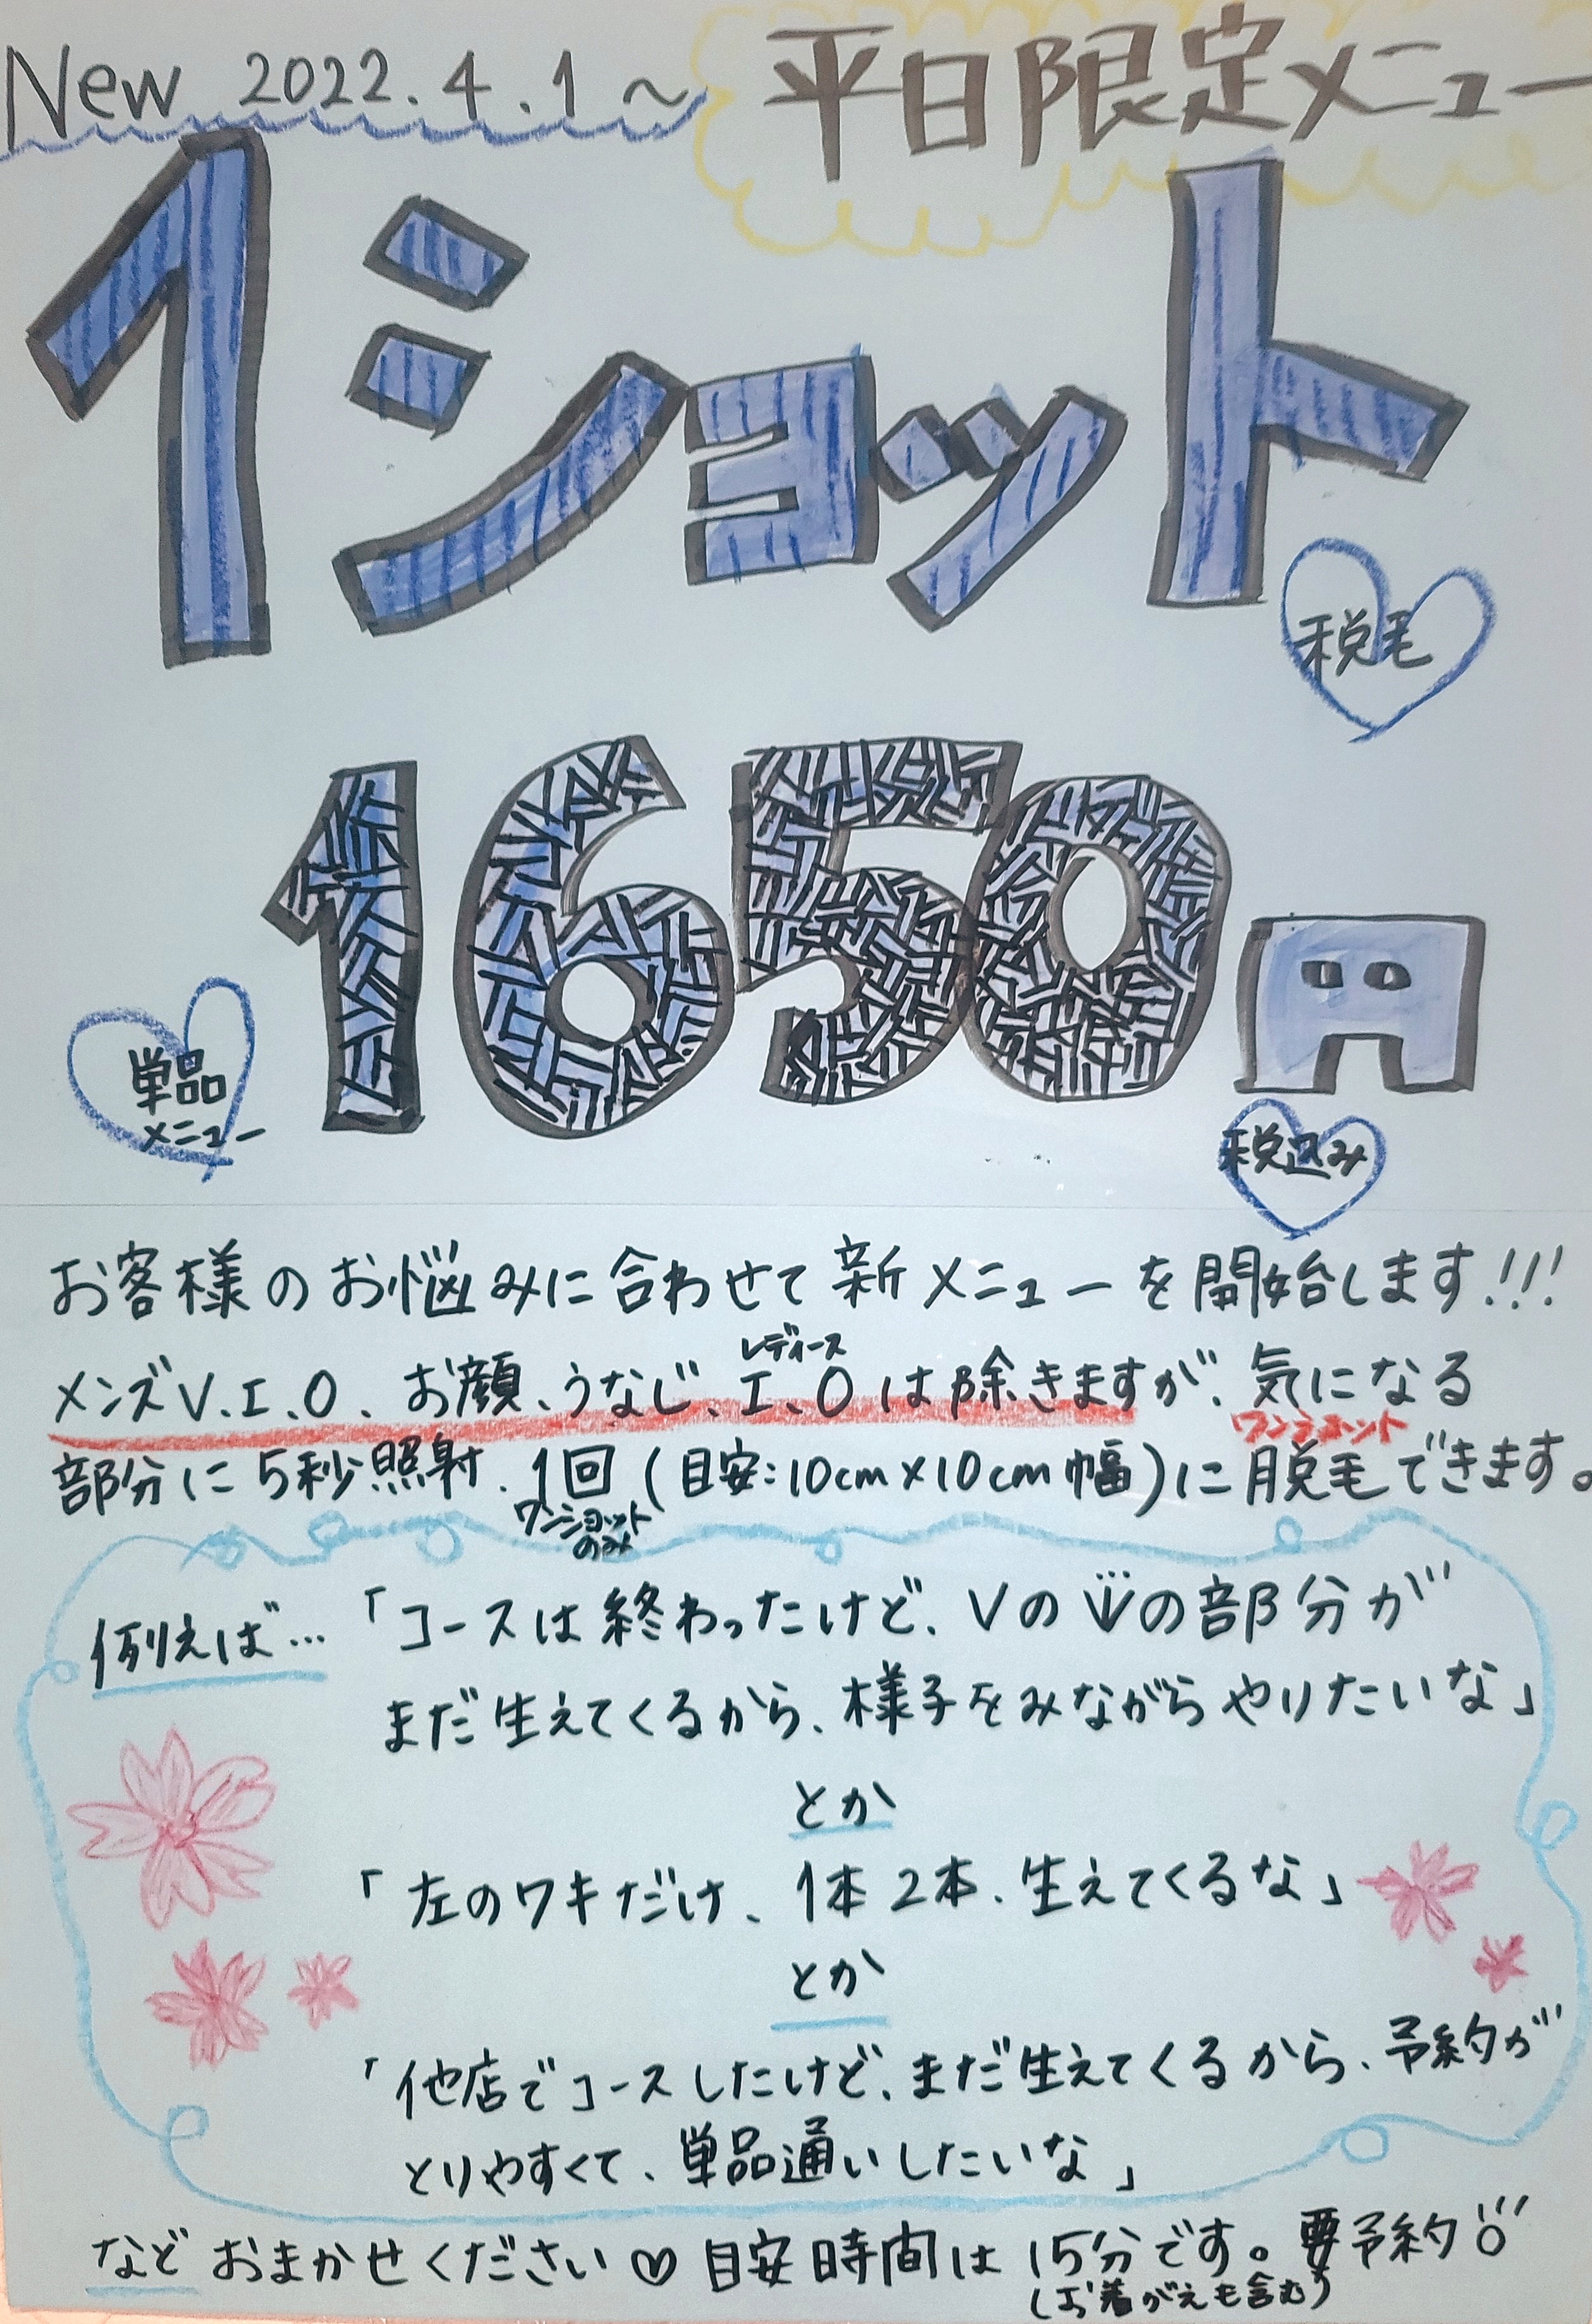 New 2022.4.1～ 平日限定メニュー
1ショット
税毛
1650円
単品
メニュー
税込み
お客様のお悩みに合わせて新メニューを開始します!!!
レディース
メンズV.I.O、お顔、うなじ、I、Oは除きますが、気になる
ワンショット
部分に5秒照射、1回(目安:10cm×10cm幅)に脱毛できます。
ワンショット
のみ
例えば…「コースは終わったけど、Vの の部分が
まだ生えてくるから、様子をみながらやりたいな」
とか
「左のワキだけ、1本2本、生えてくるな」
とか
「他店でコースしたけど、まだ生えてくるから、予約が
とりやすくて、単品通いしたいな」
などおまかせください♡目安時間は15分です。要予約
(お着がえも含む)